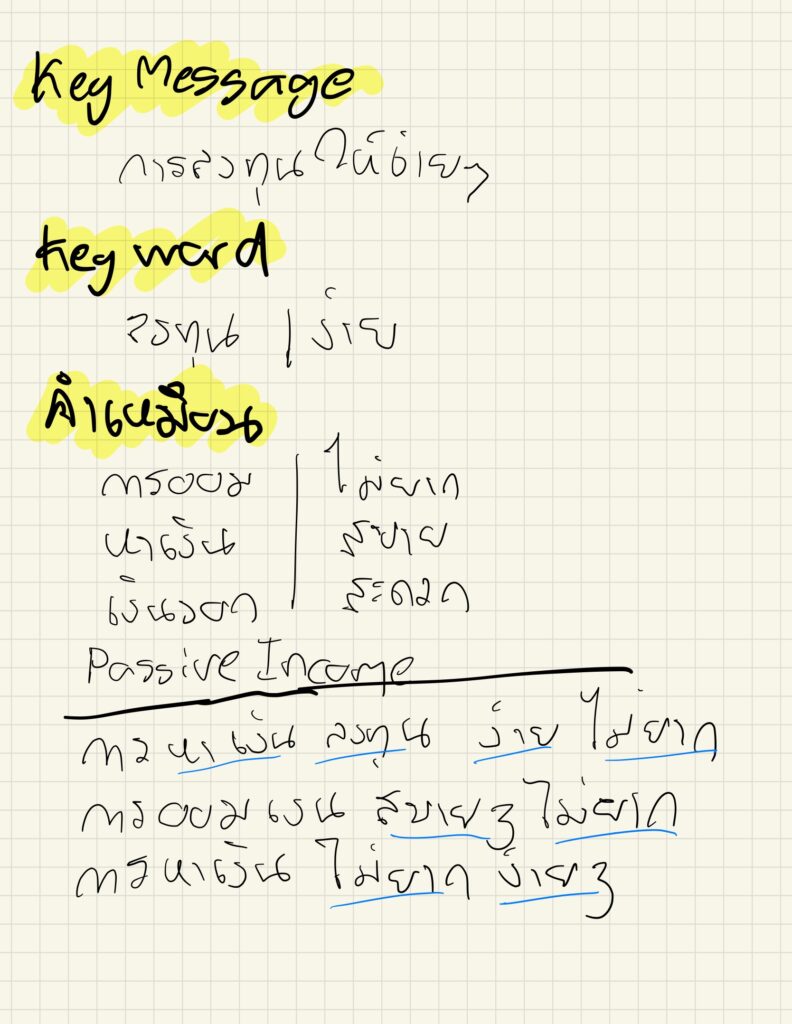 Key Message
การลงทุนให้ง่ายๆ
Key word
ลงทุน | ง่าย
คำเหมือน
การออม | ไม่ยาก
หาเงิน | สบาย
เงินงอก | สะดวก
Passive Income
การหาเงิน ลงทุน ง่าย ไม่ยาก
การออมเงิน สบายๆ ไม่ยาก
การหาเงิน ไม่ยาก ง่ายๆ